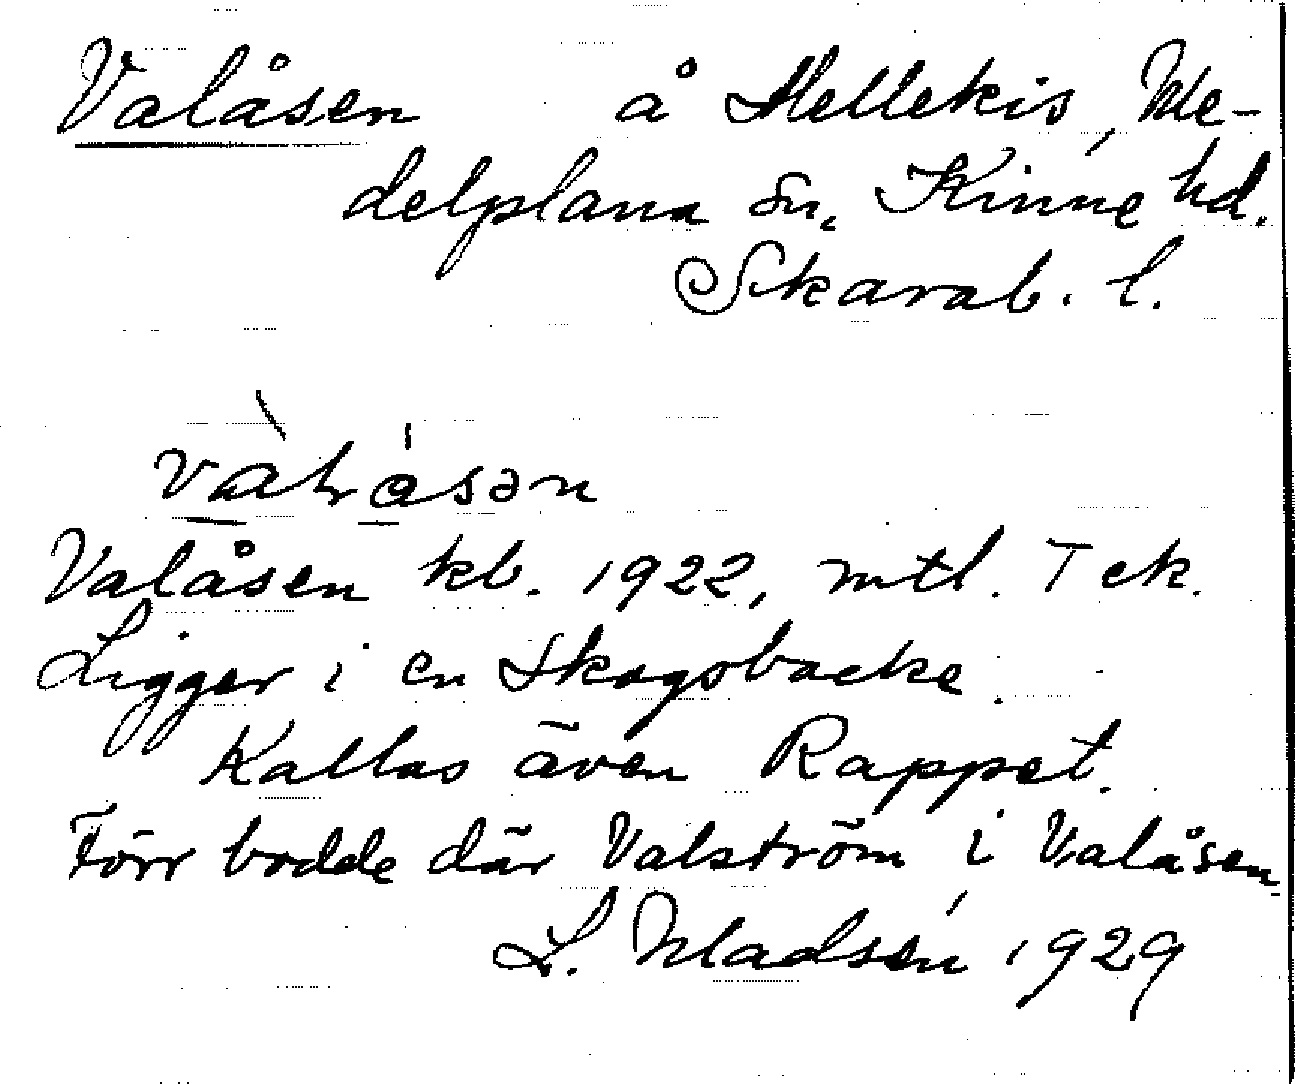 Valåsen å Hellekis, Me-
delplana sn, Kinne hd.
Skarab. l.
Valåsen kb. 1922, mtl. Tek.
Ligger i en Skogsbacke.
Kallas även Rappet.
Förr bodde där Valström i Valåsen.
L. Madsén 1929